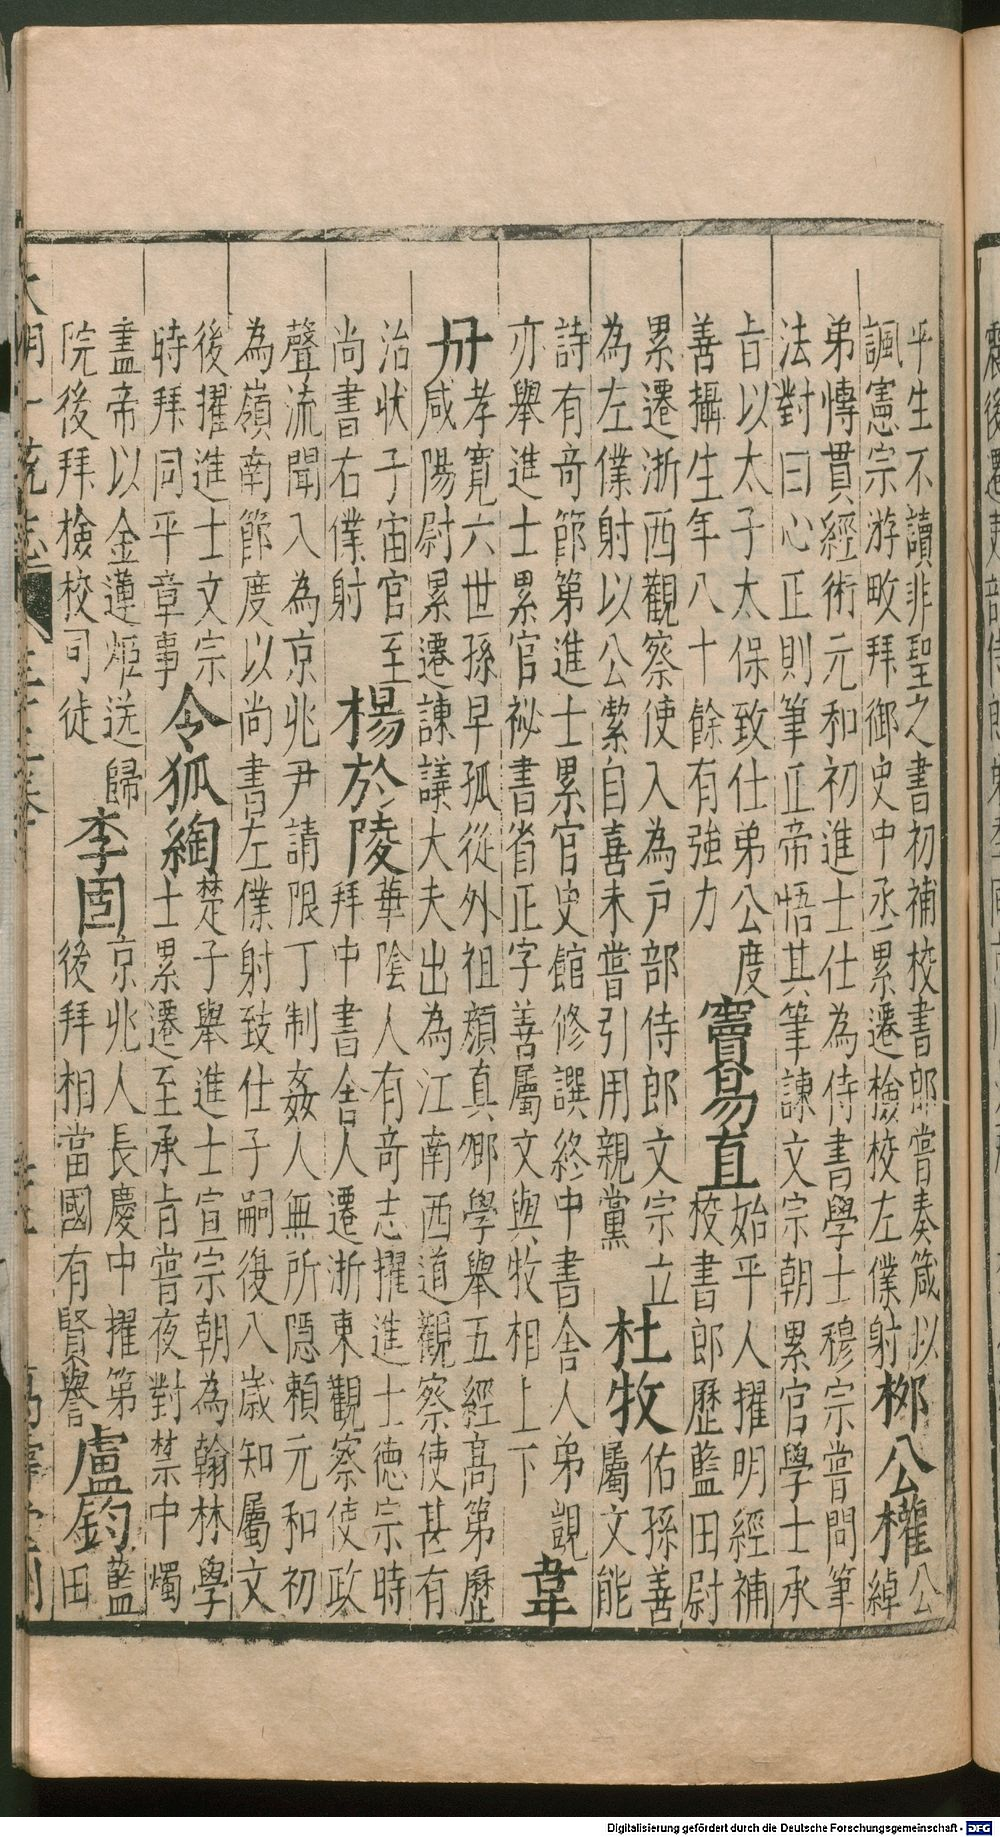 乎生不讀非聖之書初補校書郎嘗奏箴以
諷憲宗游畋拜御史中丞累遷檢校左僕射
柳公權
公
綽
弟慱貫經術元和初進士仕為侍書學士穆宗嘗問筆
法對曰心正則筆正帝悟其筆諫文宗朝累官學士承
旨以太子太保致仕弟公度
善攝生年八十餘有強力
竇易直
始平人擢明經補
校書郎歷藍田尉
累遷浙西觀察使入為戶部侍郎文宗立
為左僕射以公潔自喜未嘗引用親黨
杜牧
佑孫善
屬文能
詩有奇節第進士累官史館修譔終中書舍人弟覬
亦舉進士累官祕書省正字善屬文與牧相上下
韋
丹
孝寬六世孫早孤從外祖顏真卿學舉五經高第歷
咸陽尉累遷諫議大夫出為江南西道觀察使甚有
治狀子宙官至
尚書右僕射
楊於陵
華陰人有奇志擢進士德宗時
拜中書舍人遷浙東觀察使政
聲流聞入為京兆尹請限丁制姦人無所隱賴元和初
為嶺南節度以尚書左僕射致仕子嗣復八歲知屬文
後擢進士文宗
時拜同平章事
令狐綯
楚子舉進士宣宗朝為翰林學
士累遷至承旨嘗夜對禁中燭
盡帝以金蓮炬送歸
院後拜檢校司徒
李固
京兆人長慶中擢第
後拜相當國有賢譽
盧鈞
藍
田
大明一統志
Digitalisierung gefördert durch die Deutsche Forschungsgemeinschaft - DFG